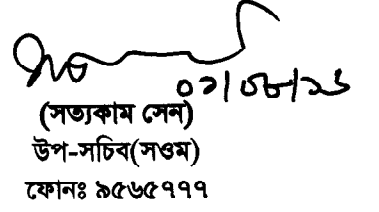 (সত্যকাম সেন)
উপ-সচিব(সওম)
ফোনঃ ৯৫৬৫৭৭৭